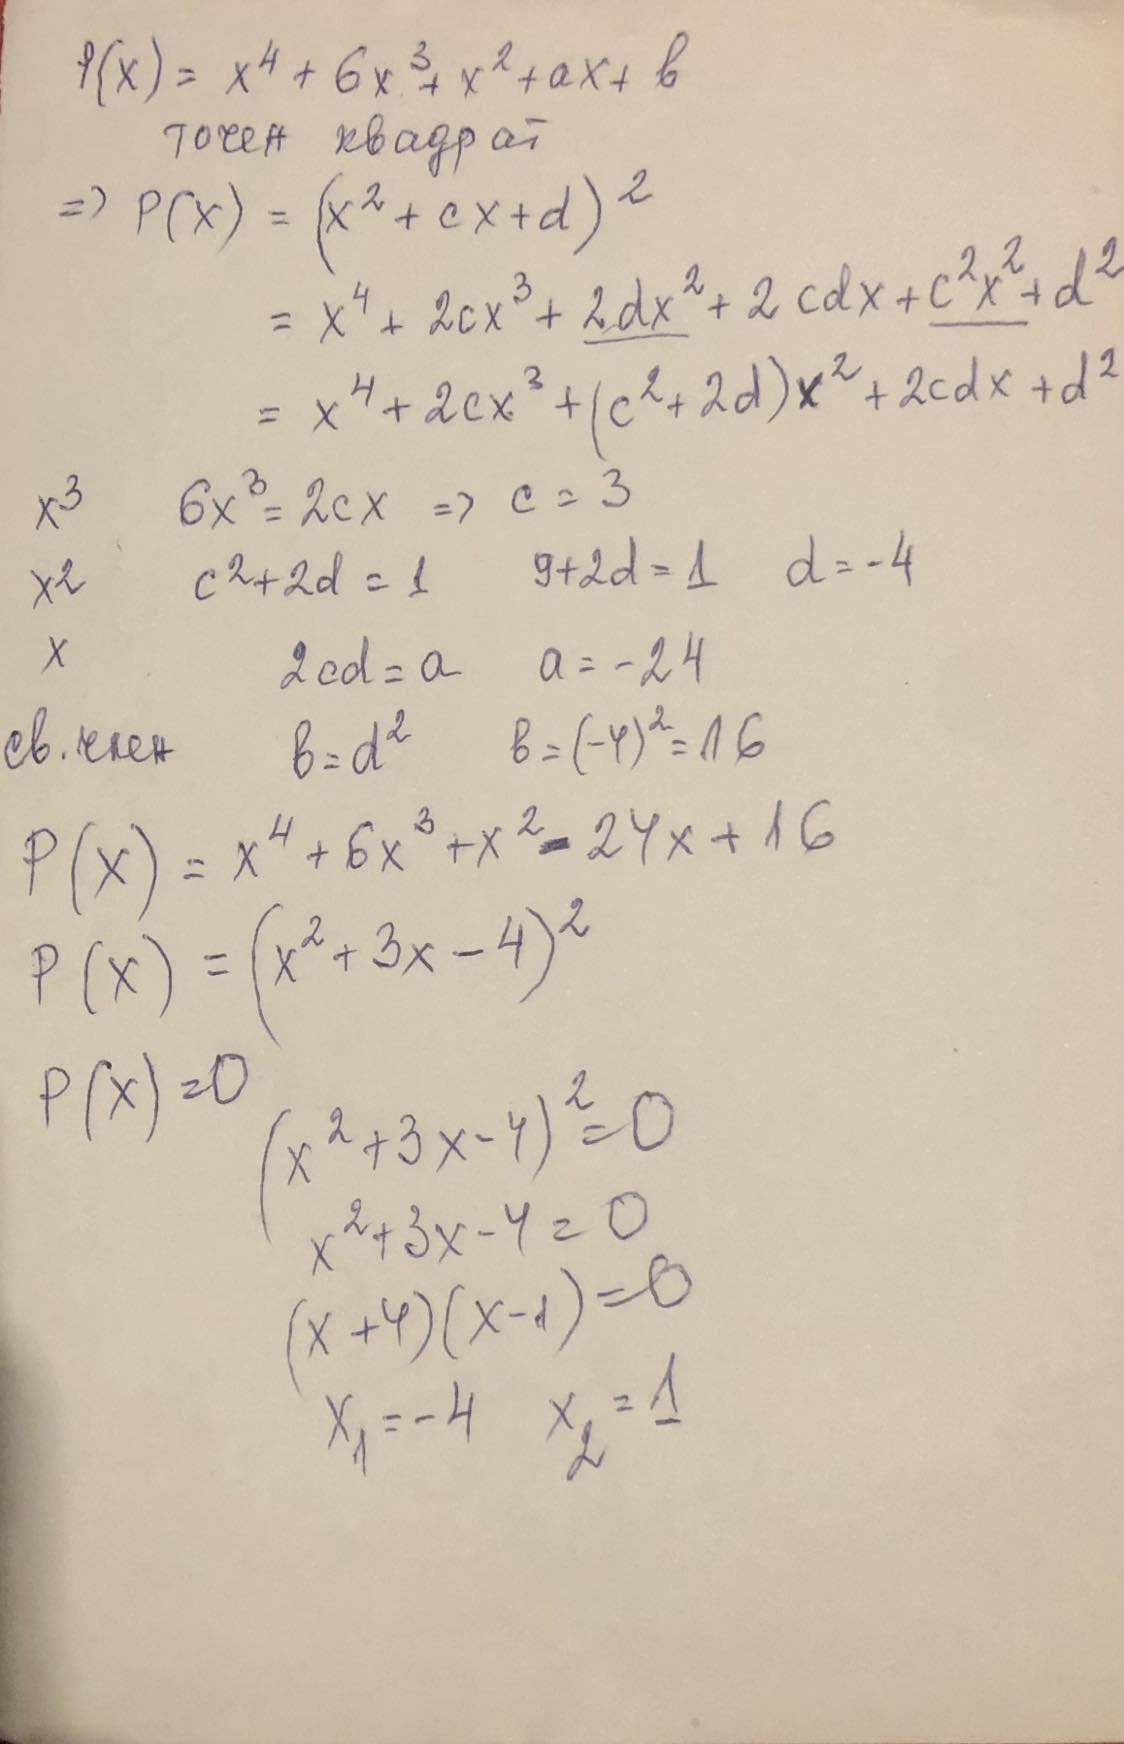 P(x) = x⁴ + 6x³ + x² + ax + в
точен квадрат
=> P(x) = (x² + cx + d)²
= x⁴ + 2cx³ + 2dx² + 2cdx + c²x² + d²
= x⁴ + 2cx³ + (c² + 2d)x² + 2cdx + d²
x³ 6x³ = 2cx => c = 3
x² c² + 2d = 1 9 + 2d = 1 d = -4
x 2cd = a a = -24
св. член в = d² в = (-4)² = 16
P(x) = x⁴ + 6x³ + x² - 24x + 16
P(x) = (x² + 3x - 4)²
P(x) = 0
(x² + 3x - 4)² = 0
x² + 3x - 4 = 0
(x + 4)(x - 1) = 0
x₁ = -4 x₂ = 1